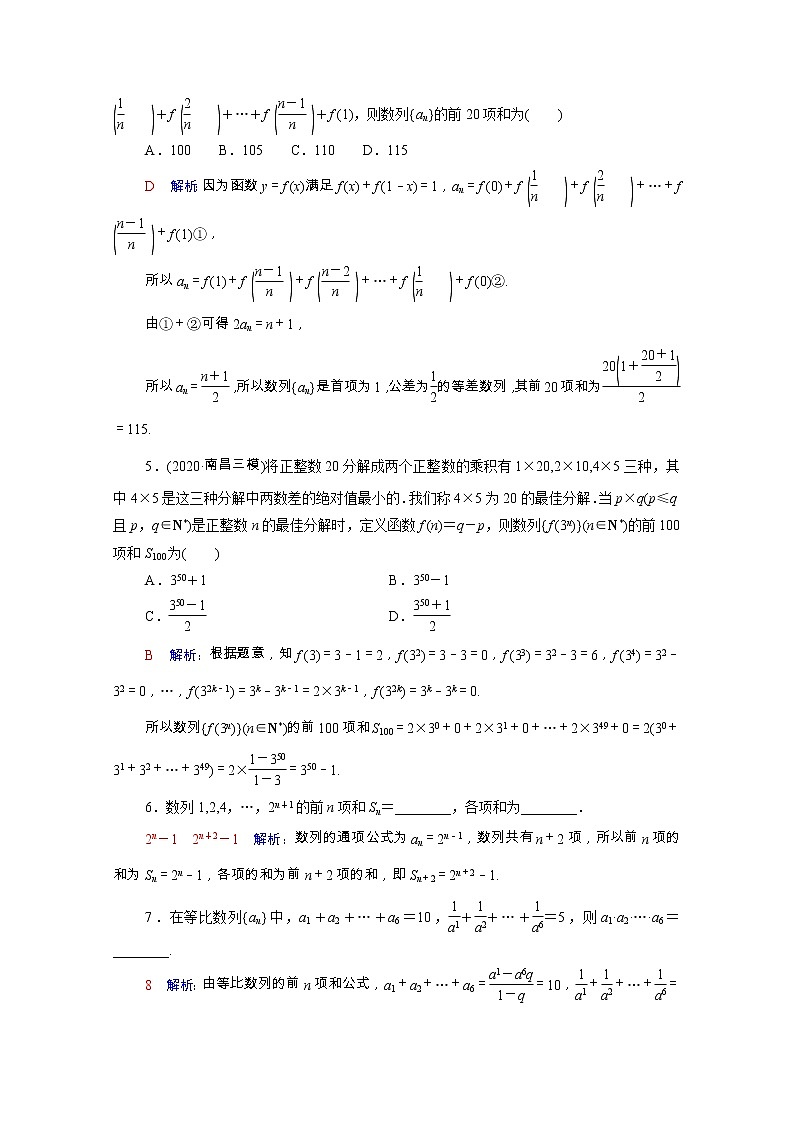 (1/n)+f(2/n)+…+f((n－1)/n)+f(1)，则数列{aₙ}的前20项和为(　　)
A．100　B．105　C．110　D．115
D　解析:因为函数y＝f(x)满足f(x)＋f(1－x)＝1，aₙ＝f(0)＋f(1/n)＋f(2/n)＋…＋f
((n－1)/n)＋f(1)①，
所以aₙ＝f(1)＋f((n－1)/n)＋f((n－2)/n)＋…＋f(1/n)＋f(0)②.
由①＋②可得2aₙ＝n＋1，
所以aₙ＝(n＋1)/2,所以数列{aₙ}是首项为1,公差为1/2的等差数列,其前20项和为20(1＋(20＋1)/2)/2
＝115.
5．(2020·南昌三模)将正整数20分解成两个正整数的乘积有1×20,2×10,4×5三种，其
中4×5是这三种分解中两数差的绝对值最小的.我们称4×5为20的最佳分解.当p×q(p≤q
且p，q∈N*)是正整数n的最佳分解时，定义函数f(n)＝q－p，则数列{f(3ⁿ)}(n∈N*)的前100
项和S₁₀₀为(　　)
A．3⁵⁰＋1　B．3⁵⁰－1
C．(3⁵⁰－1)/2　D．(3⁵⁰＋1)/2
B　解析:根据题意，知f(3)＝3－1＝2，f(3²)＝3－3＝0，f(3³)＝3²－3＝6，f(3⁴)＝3²－
3²＝0，…，f(3²ᵏ⁻¹)＝3ᵏ－3ᵏ⁻¹＝2×3ᵏ⁻¹，f(3²ᵏ)＝3ᵏ－3ᵏ＝0.
所以数列{f(3ⁿ)}(n∈N*)的前100项和S₁₀₀＝2×3⁰＋0＋2×3¹＋0＋…＋2×3⁴⁹＋0＝2(3⁰＋
3¹＋3²＋…＋3⁴⁹)＝2×(1－3⁵⁰)/(1－3)＝3⁵⁰－1.
6．数列1,2,4，…，2ⁿ⁺¹的前n项和Sₙ＝________,各项和为________.
2ⁿ－1　2ⁿ⁺²－1　解析:数列的通项公式为aₙ＝2ⁿ⁻¹，数列共有n＋2项，所以前n项的
和为Sₙ＝2ⁿ－1，各项的和为前n＋2项的和，即Sₙ₊₂＝2ⁿ⁺²－1.
7．在等比数列{aₙ}中，a₁＋a₂＋…＋a₆＝10，1/a¹＋1/a²＋…＋1/a⁶＝5，则a₁·a₂·…·a₆＝
________.
8　解析:由等比数列的前n项和公式，a₁＋a₂＋…＋a₆＝(a¹－a⁶q)/(1－q)＝10，1/a¹＋1/a²＋…＋1/a⁶＝